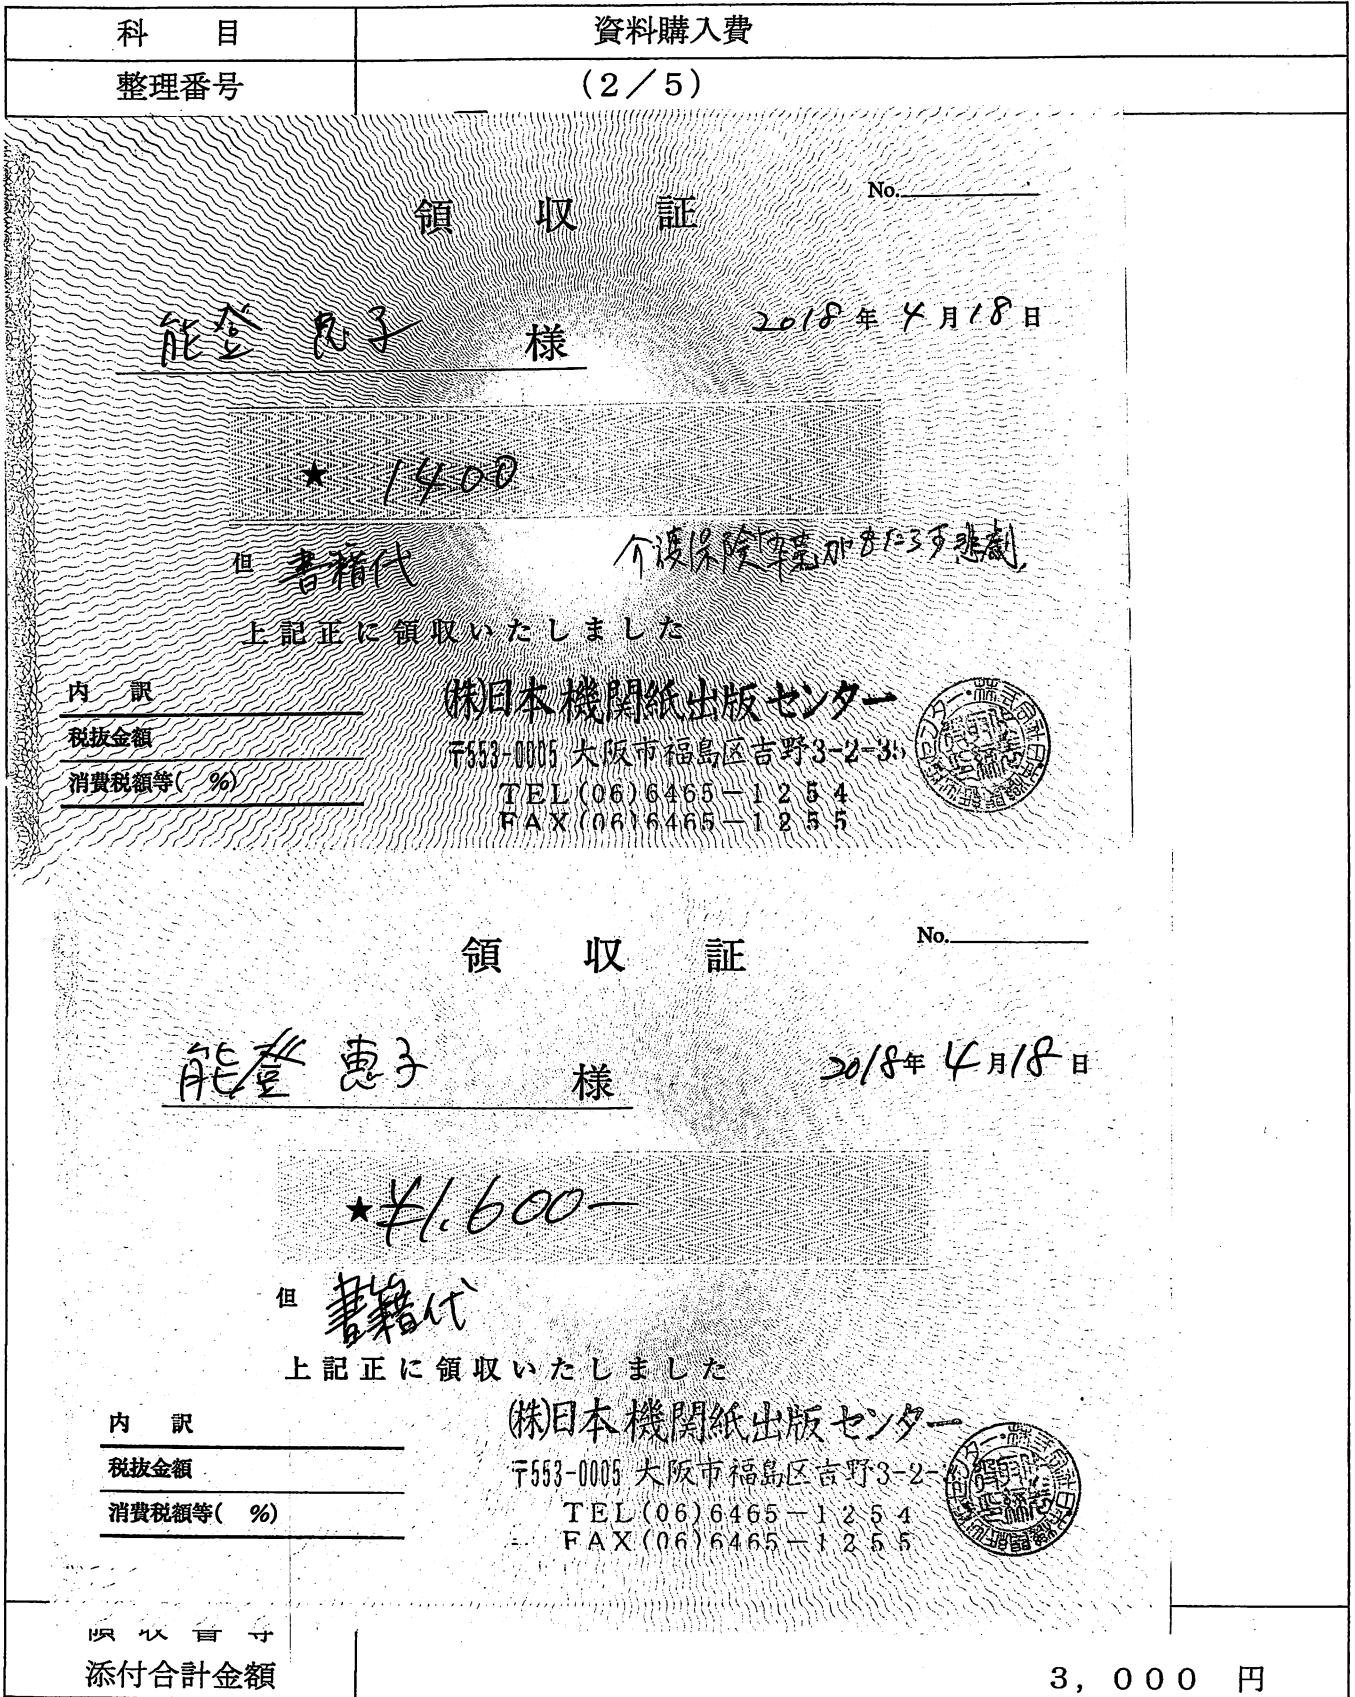 科 目 資料購入費
整理番号 (2/5)
領 収 証 No.
能登 恵子 様 2018年 4月18日
★ 1400
但 書籍代 介護保険卒業がもたらす悲劇
上記正に領収いたしました
内 訳
税抜金額
消費税額等( %)
㈱日本機関紙出版センター
〒553-0005 大阪市福島区吉野3-2-35
TEL(06)6465-1254
FAX(06)6465-1255
領 収 証 No.
能登 恵子 様 2018年 4月18日
★¥1,600-
但 書籍代
上記正に領収いたしました
内 訳
税抜金額
消費税額等( %)
㈱日本機関紙出版センター
〒553-0005 大阪市福島区吉野3-2-
TEL(06)6465-1254
FAX(06)6465-1255
領収書等
添付合計金額 3,000 円